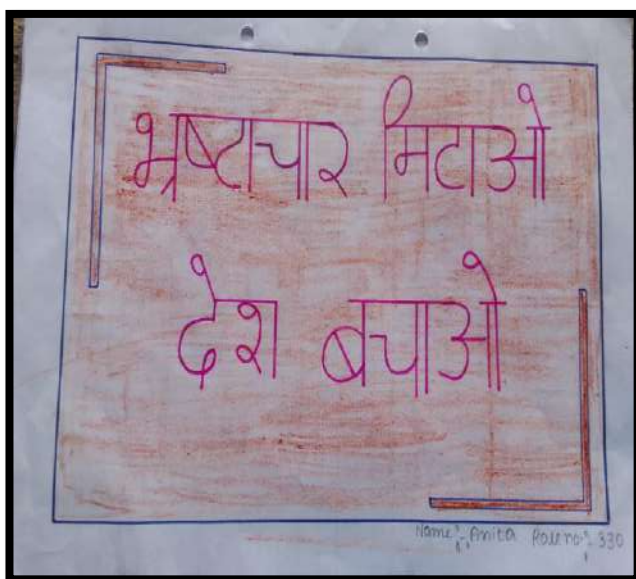 भ्रष्टाचार मिटाओ
देश बचाओ
Name:- Anita Roll no:- 330